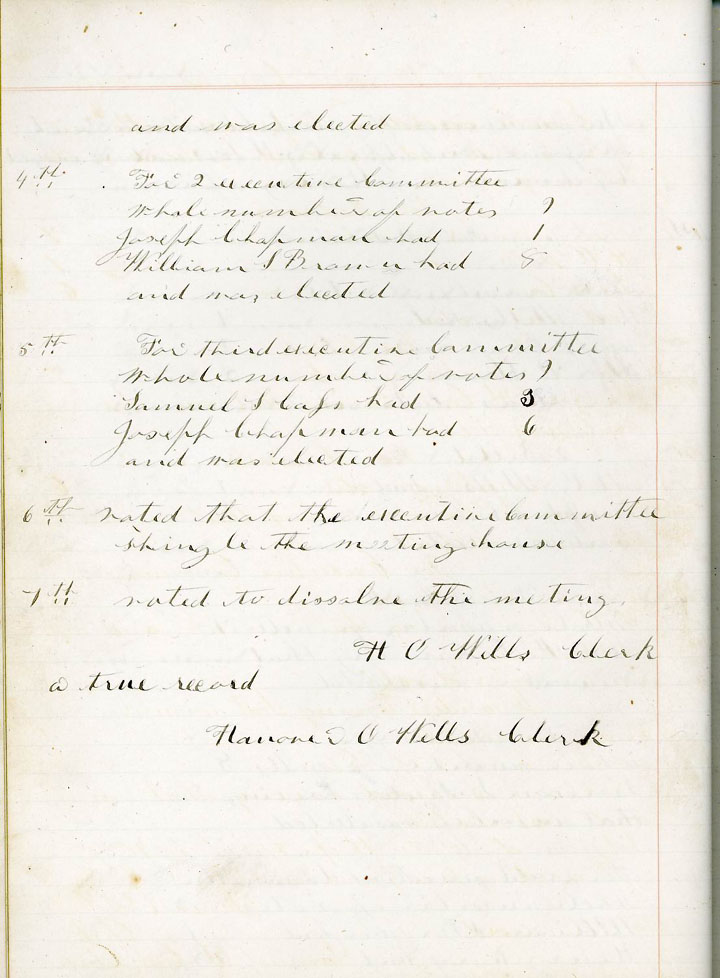 and was elected
4th For 2 executive Committee
Whole number of votes 9
Joseph Chapman had 1
William S Brown had 8
and was elected
5th For third executive Committee
Whole number of votes 9
Samuel S Cass had 3
Joseph Chapman had 6
and was elected
6th voted that the executive Committee
shingle the meeting house
7th voted to dissolve the meting
H O Wells Clerk
a true record
O Wells Clerk